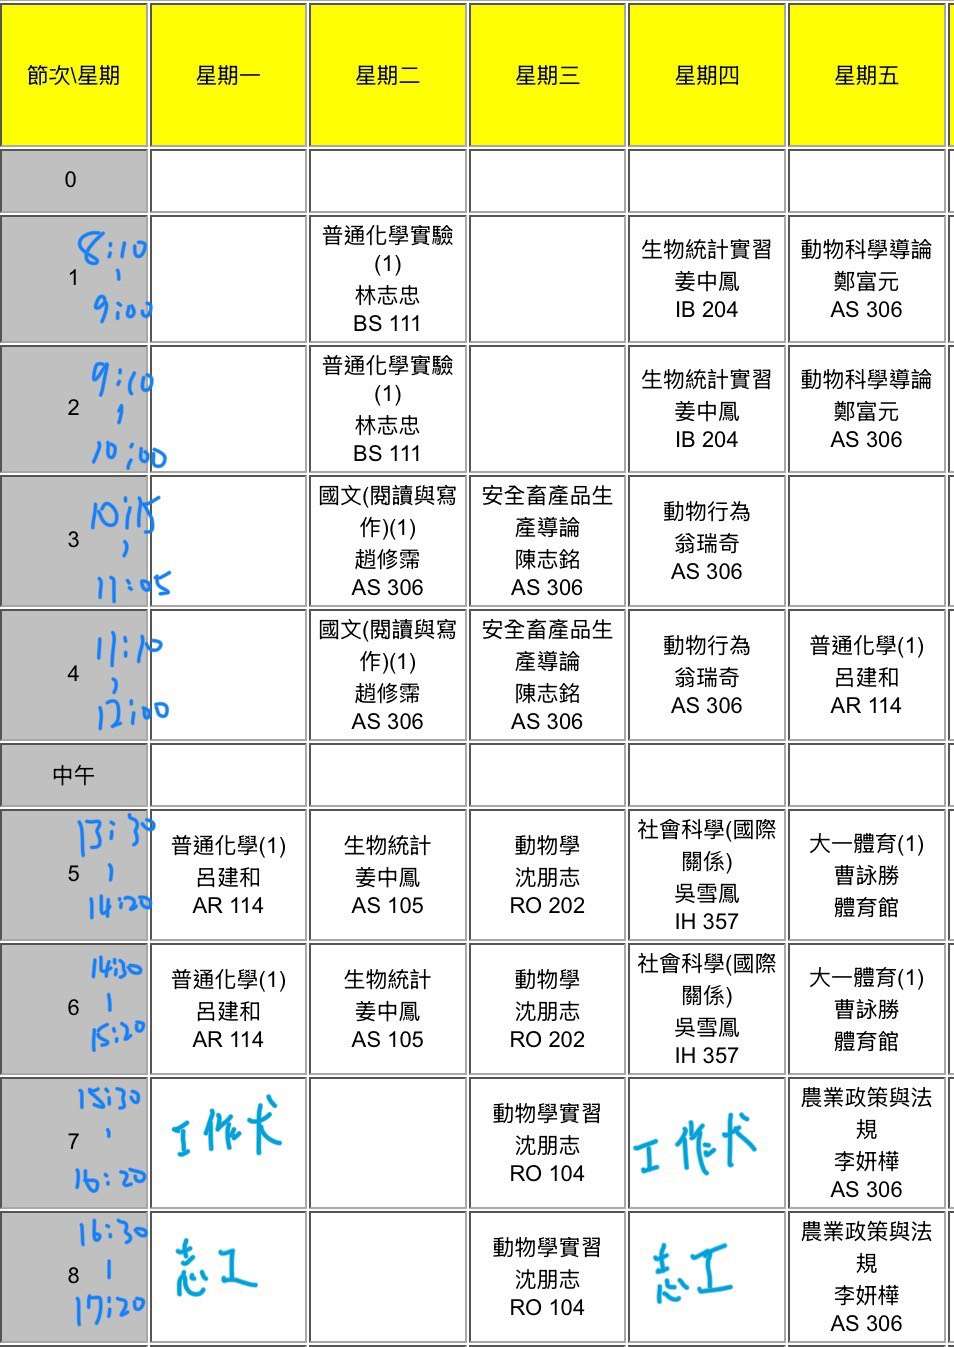 節次\星期 星期一 星期二 星期三 星期四 星期五
0
1
8:10
|
9:00
普通化學實驗
(1)
林志忠
BS 111
生物統計實習
姜中鳳
IB 204
動物科學導論
鄭富元
AS 306
2
9:10
|
10:00
普通化學實驗
(1)
林志忠
BS 111
生物統計實習
姜中鳳
IB 204
動物科學導論
鄭富元
AS 306
3
10:15
|
11:05
國文(閱讀與寫
作)(1)
趙修霈
AS 306
安全畜產品生
產導論
陳志銘
AS 306
動物行為
翁瑞奇
AS 306
4
11:10
|
12:00
國文(閱讀與寫
作)(1)
趙修霈
AS 306
安全畜產品生
產導論
陳志銘
AS 306
動物行為
翁瑞奇
AS 306
普通化學(1)
呂建和
AR 114
中午
5
13:30
|
14:20
普通化學(1)
呂建和
AR 114
生物統計
姜中鳳
AS 105
動物學
沈朋志
RO 202
社會科學(國際
關係)
吳雪鳳
IH 357
大一體育(1)
曹詠勝
體育館
6
14:30
|
15:20
普通化學(1)
呂建和
AR 114
生物統計
姜中鳳
AS 105
動物學
沈朋志
RO 202
社會科學(國際
關係)
吳雪鳳
IH 357
大一體育(1)
曹詠勝
體育館
7
15:30
|
16:20
工作犬
動物學實習
沈朋志
RO 104
工作犬
農業政策與法
規
李妍樺
AS 306
8
16:30
|
17:20
志工
動物學實習
沈朋志
RO 104
志工
農業政策與法
規
李妍樺
AS 306